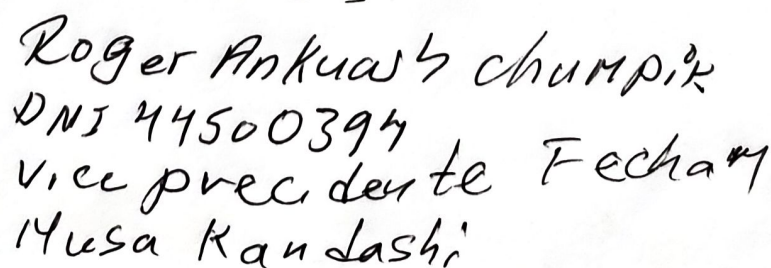 Roger Ankuash chumpik
DNI 44500394
Vice precidente Fecham
Musa Kandashi